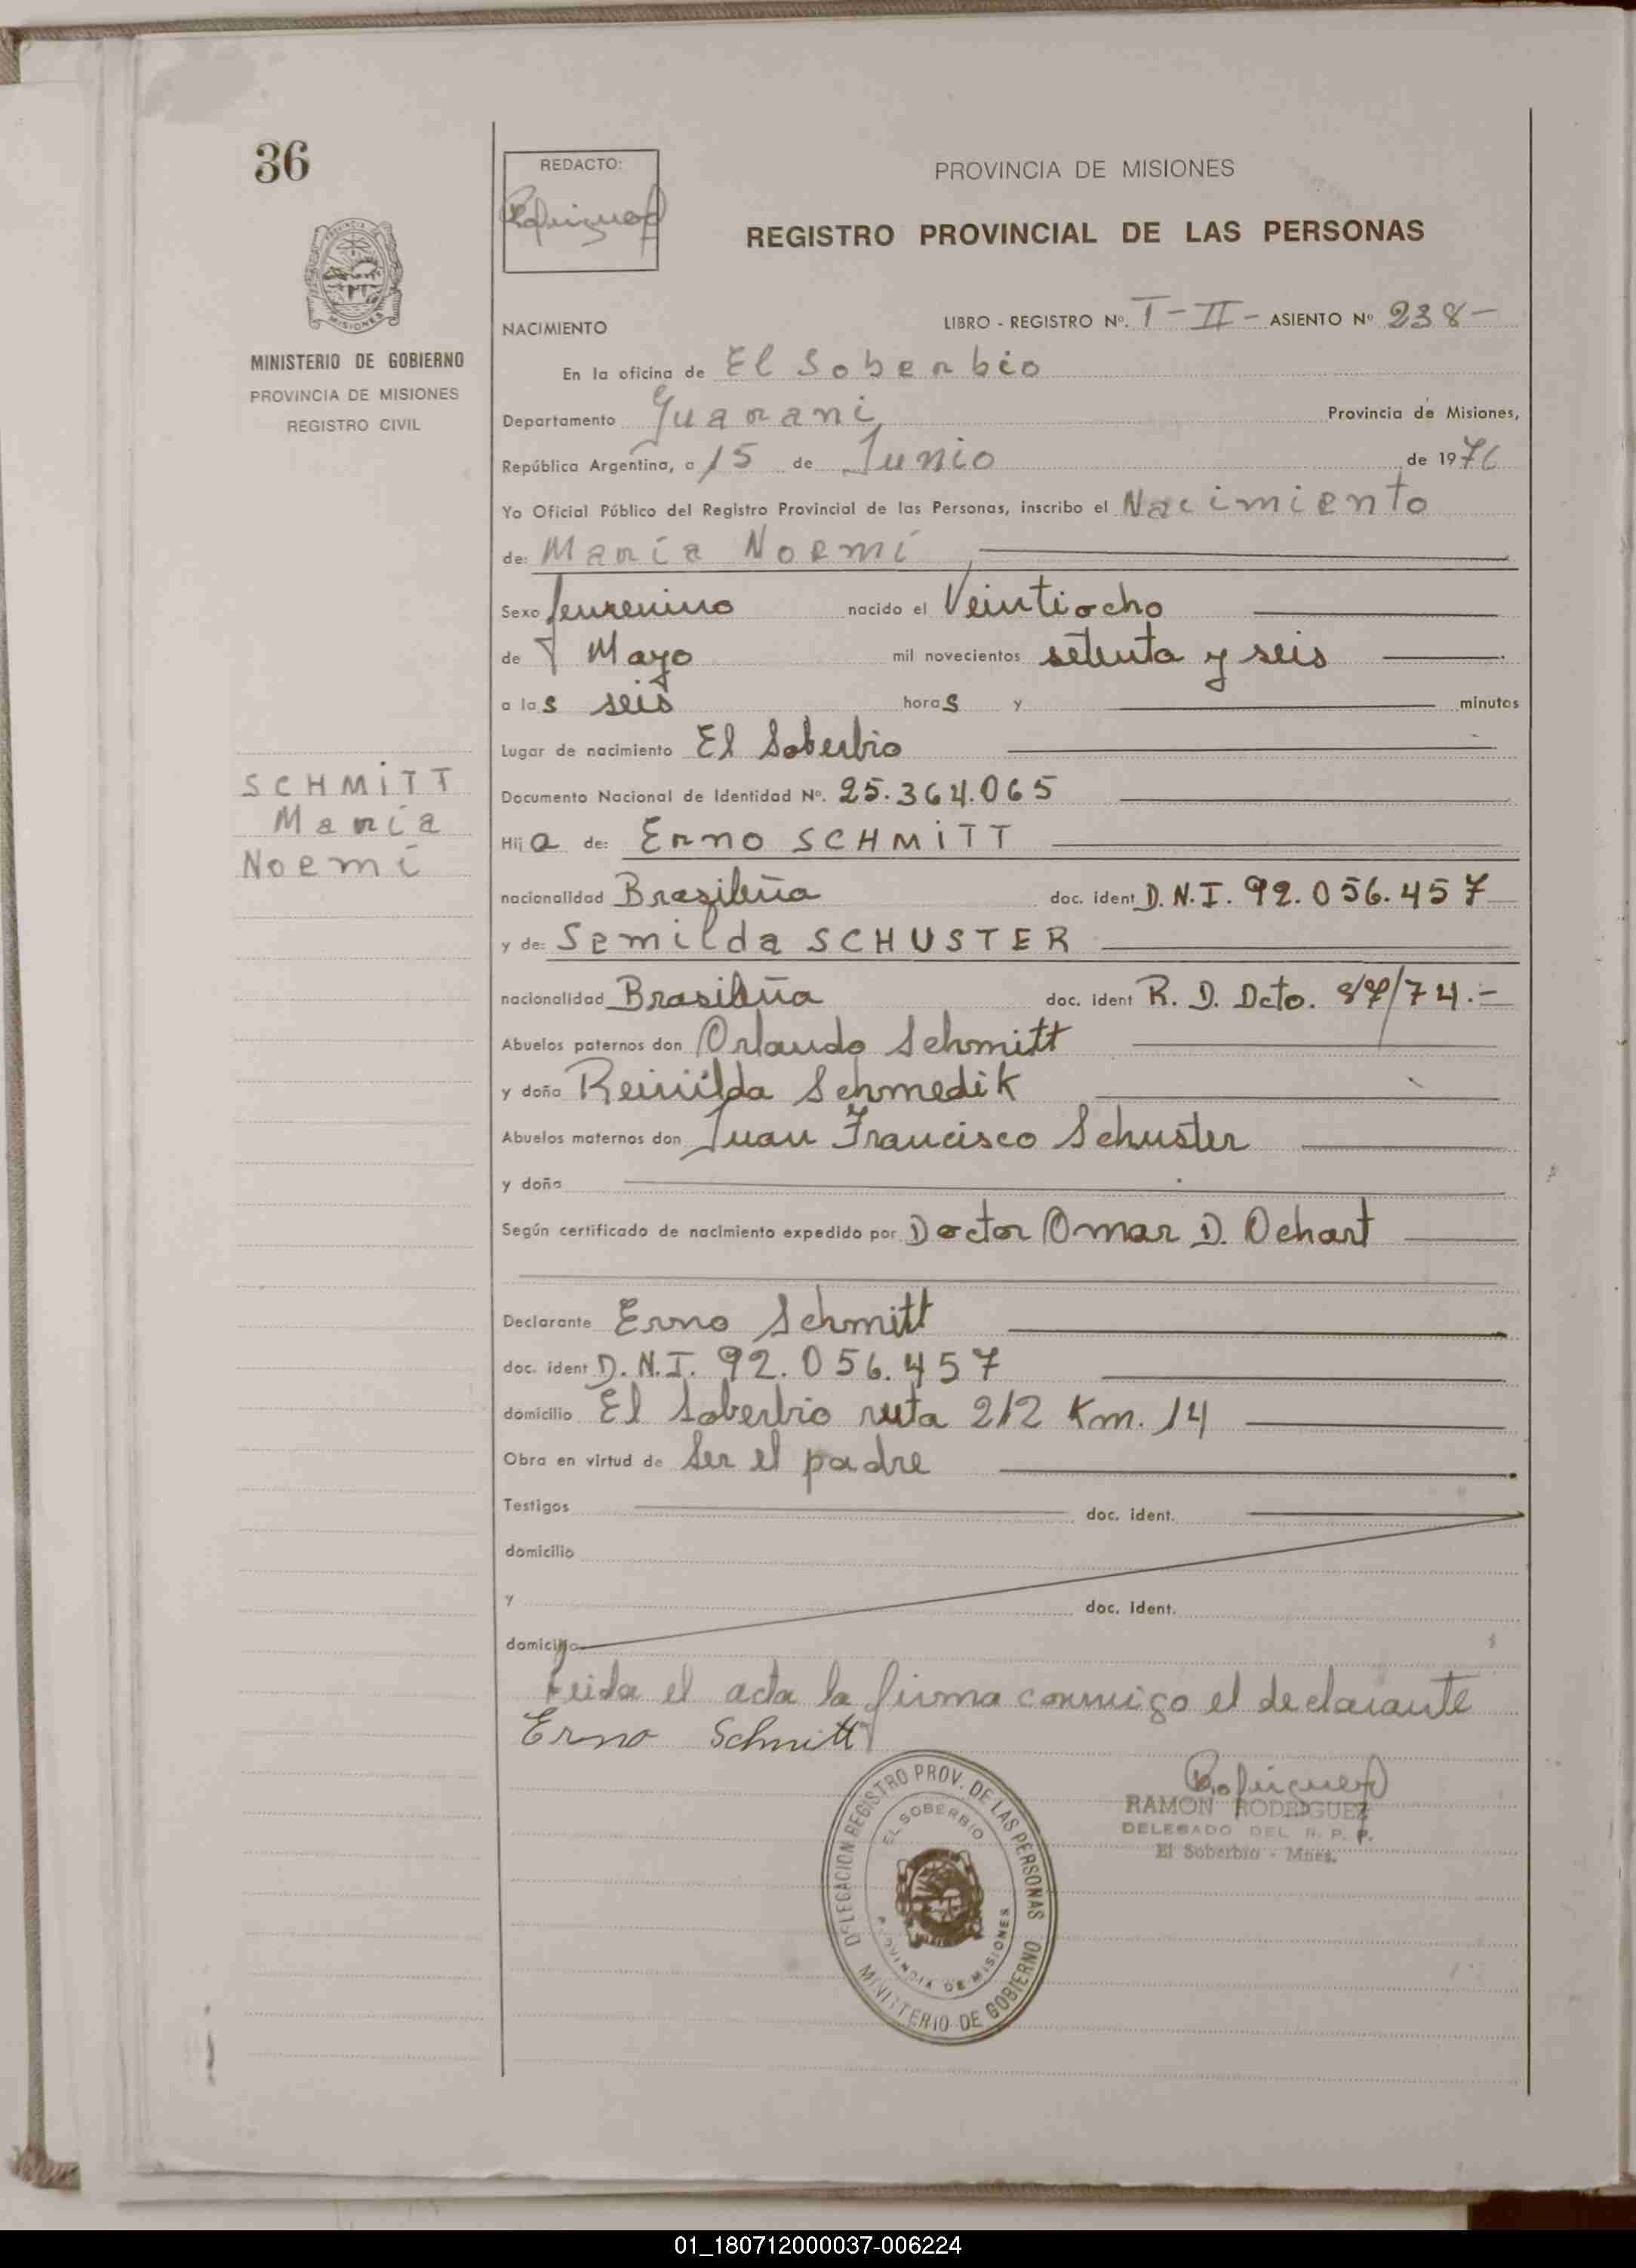 36
REDACTO:
PROVINCIA DE MISIONES
REGISTRO PROVINCIAL DE LAS PERSONAS
MISIONES
MINISTERIO DE GOBIERNO
PROVINCIA DE MISIONES
REGISTRO CIVIL
NACIMIENTO
LIBRO - REGISTRO Nº. T-II- ASIENTO Nº 238-
En la oficina de El Soberbio
Departamento Guarani Provincia de Misiones,
República Argentina, a 15 de Junio de 1976
Yo Oficial Público del Registro Provincial de las Personas, inscribo el Nacimiento
de: María Noemí
Sexo femenino nacido el Veintiocho
de Mayo mil novecientos setenta y seis
a las seis horas y minutos
Lugar de nacimiento El Soberbio
SCHMITT
María
Noemí
Documento Nacional de Identidad Nº. 25.364.065
Hija de: Erno SCHMITT
nacionalidad Brasileña doc. ident D.N.I. 92.056.457
y de: Semilda SCHUSTER
nacionalidad Brasileña doc. ident R. D. Dcto. 87/74.-
Abuelos paternos don Orlando Schmitt
y doña Reinilda Schmedik
Abuelos maternos don Juan Francisco Schuster
y doña
Según certificado de nacimiento expedido por Doctor Omar D. Ochart
Declarante Erno Schmitt
doc. ident D.N.I. 92.056.457
domicilio El Soberbio ruta 212 Km. 14
Obra en virtud de Ser el padre
Testigos doc. ident.
domicilio
y doc. ident.
domicilio
Leida el acta la firma conmigo el declarante
Erno Schmitt
DELEGACION REGISTRO PROV. DE LAS PERSONAS
EL SOBERBIO
PROVINCIA DE MISIONES
MINISTERIO DE GOBIERNO
RAMON RODRIGUEZ
DELEGADO DEL R. P. P.
El Soberbio - Mnes.
01_180712000037-006224